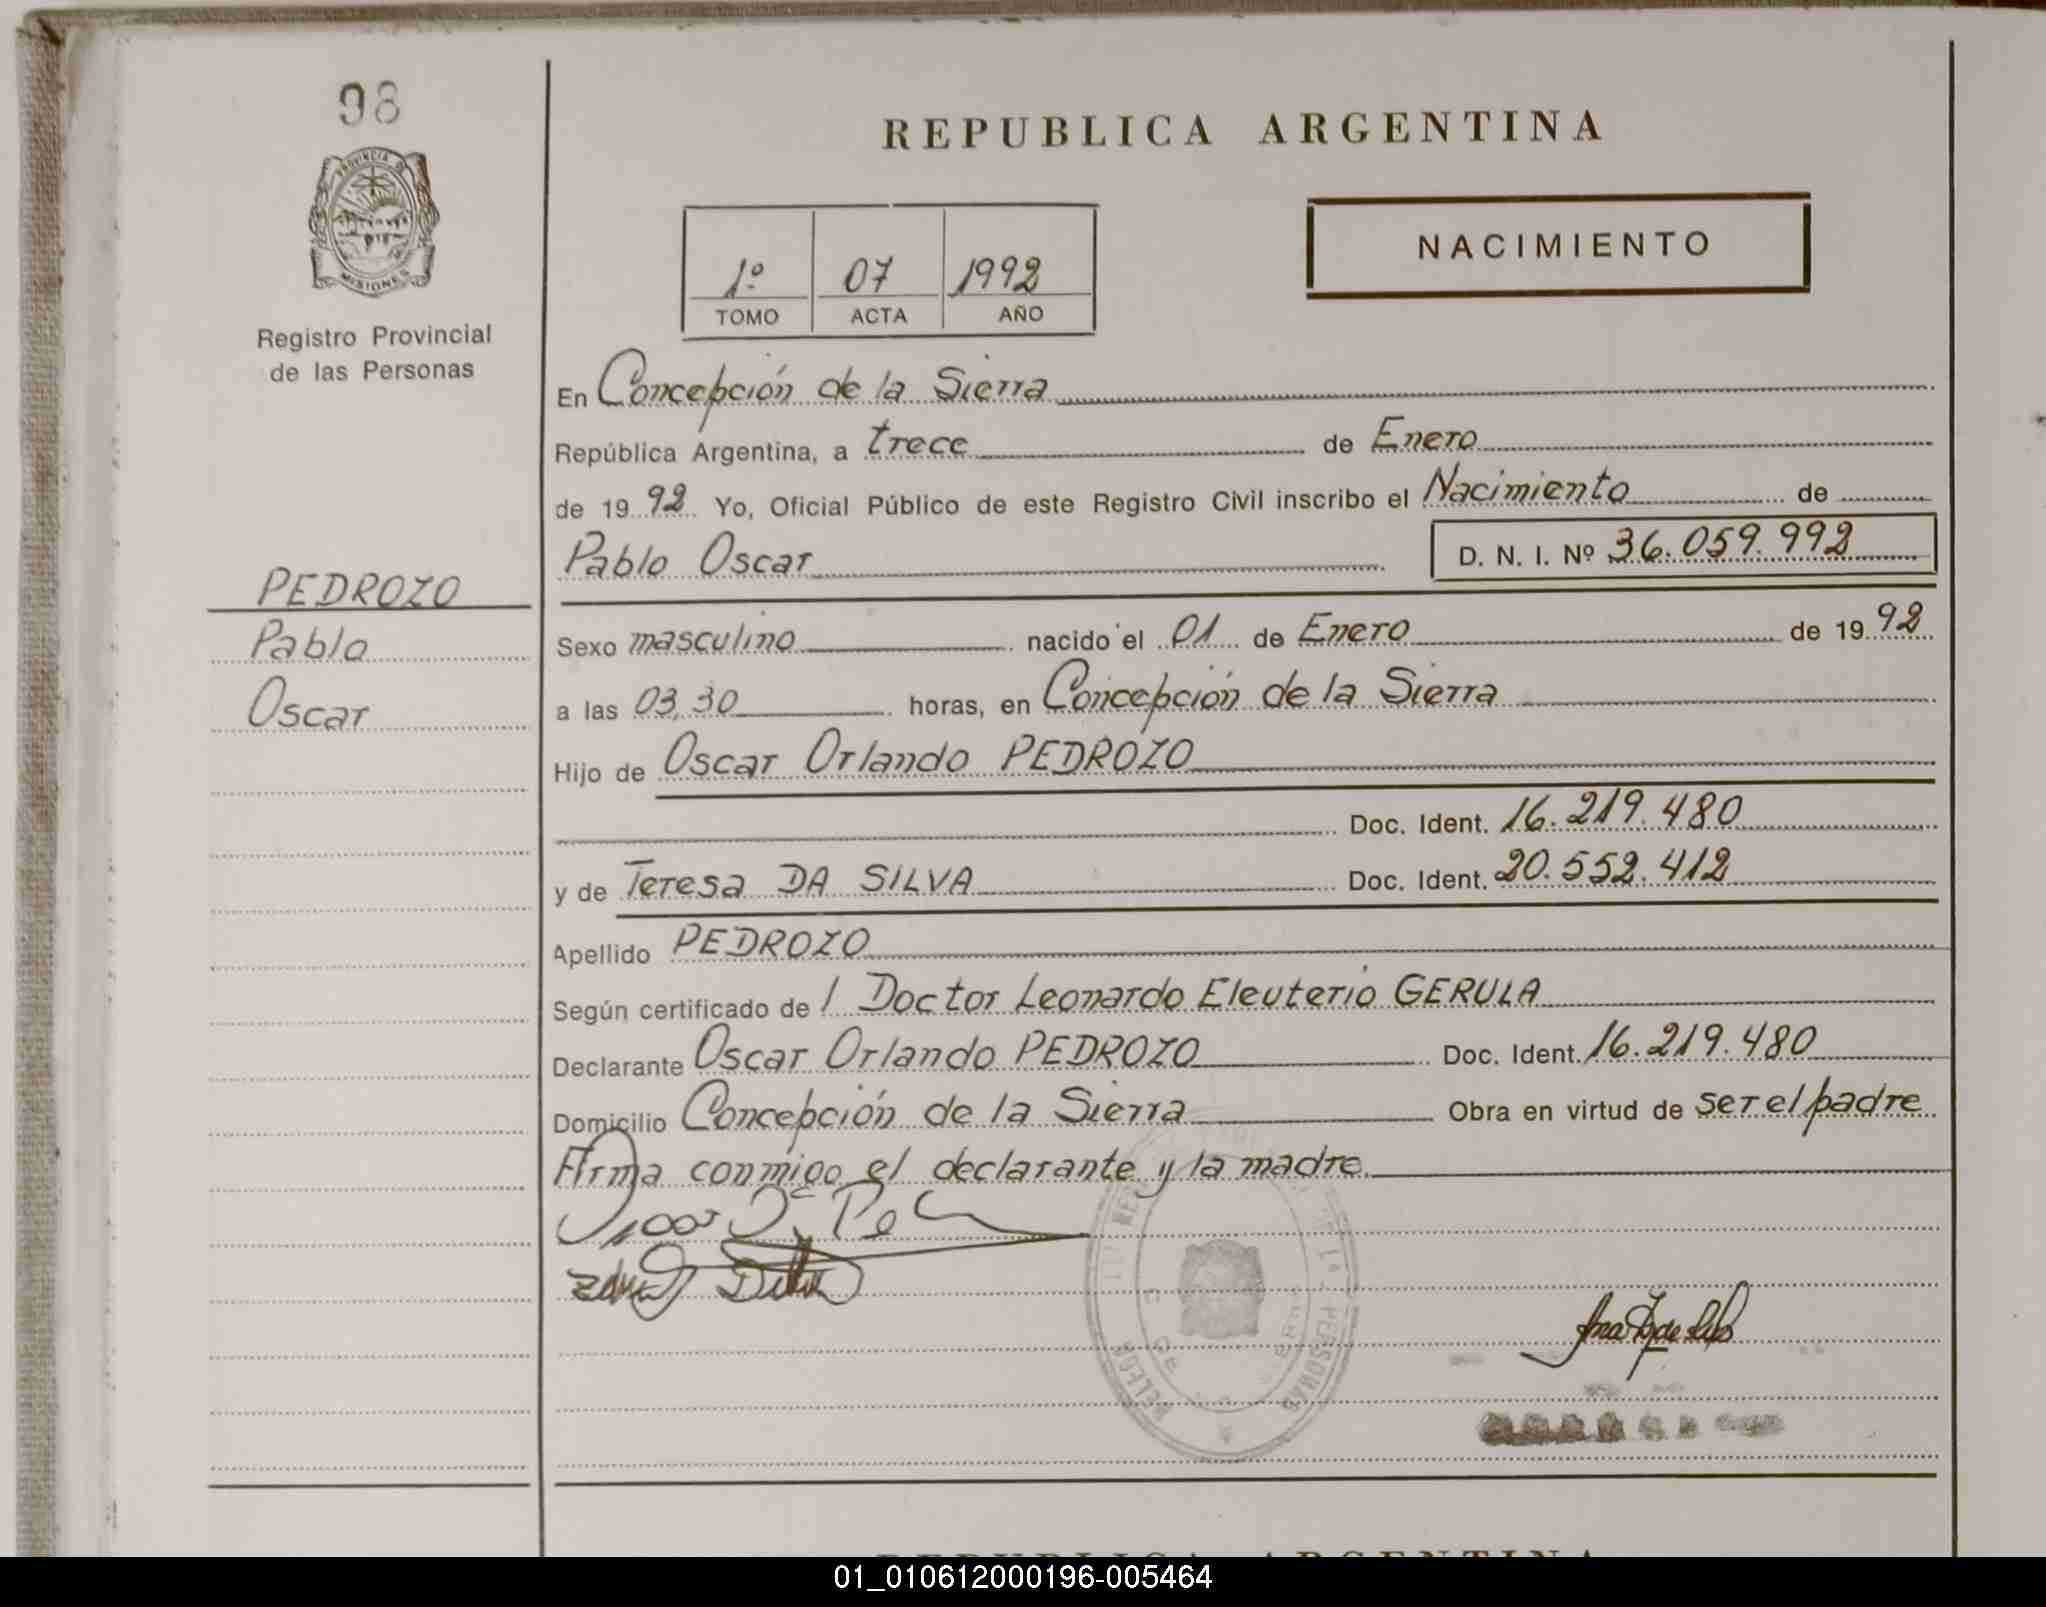 98
PROVINCIA D
MISIONES
Registro Provincial
de las Personas
PEDROZO
Pablo
Oscar
REPUBLICA ARGENTINA
1º 07 1992
TOMO ACTA AÑO
NACIMIENTO
En Concepción de la Sierra
República Argentina, a trece de Enero
de 1992 Yo, Oficial Público de este Registro Civil inscribo el Nacimiento de
Pablo Oscar D. N. I. Nº 36.059.992
Sexo masculino nacido el 01 de Enero de 1992
a las 03,30 horas, en Concepción de la Sierra
Hijo de Oscar Orlando PEDROZO
Doc. Ident. 16.219.480
y de Teresa DA SILVA Doc. Ident. 20.552.412
Apellido PEDROZO
Según certificado de l Doctor Leonardo Eleuterio GERULA
Declarante Oscar Orlando PEDROZO Doc. Ident. 16.219.480
Domicilio Concepción de la Sierra Obra en virtud de ser el padre
Firma conmigo el declarante y la madre.
PERSONAS
REPUBLICA ARGENTINA
01_010612000196-005464